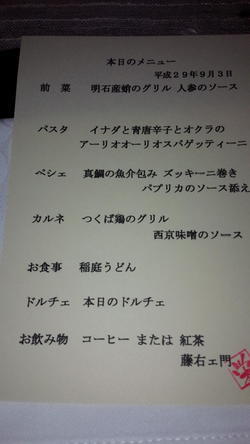 本日のメニュー
平成29年9月3日
前 菜 明石産蛸のグリル 人参のソース
パスタ イナダと青唐辛子とオクラの
アーリオオーリオスパゲッティーニ
ペシェ 真鯛の魚介包み ズッキーニ巻き
パプリカのソース添え
カルネ つくば鶏のグリル
西京味噌のソース
お食事 稲庭うどん
ドルチェ 本日のドルチェ
お飲み物 コーヒー または 紅茶
藤右ェ門